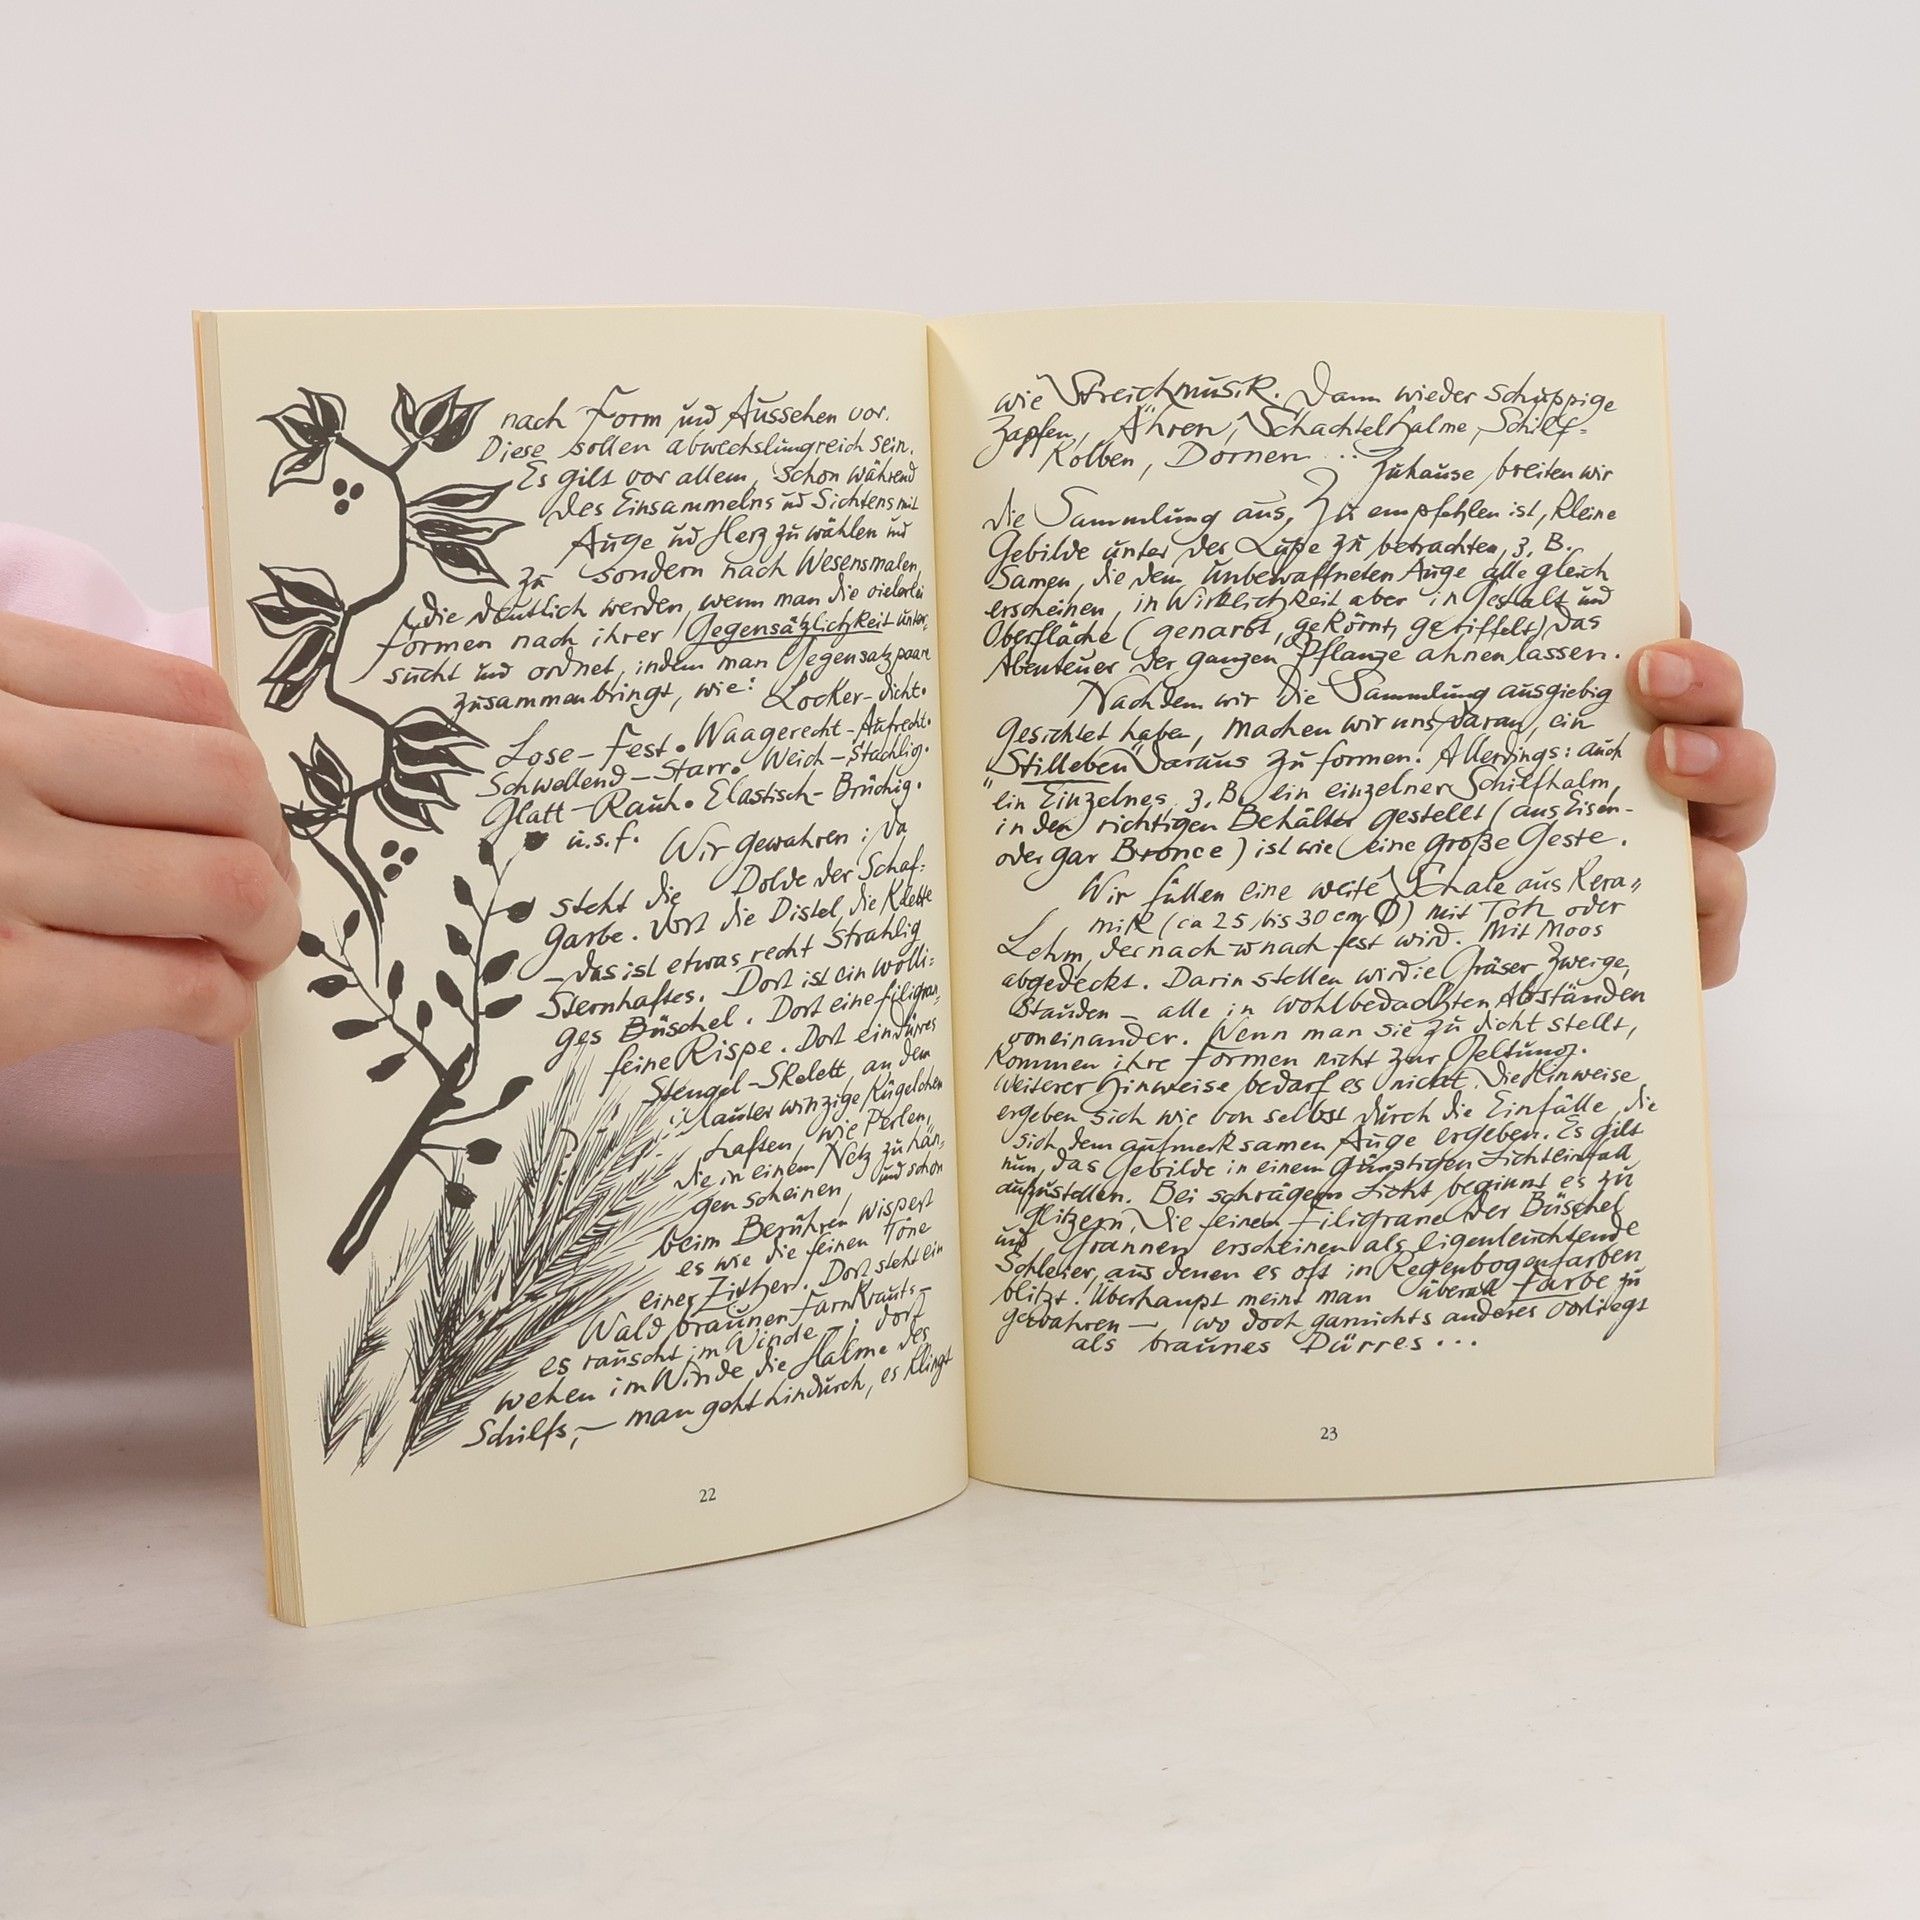 nach Form und Aussehen vor.
Diese sollen abwechslungreich sein.
Es gilt vor allem, schon während
des Einsammelns ud Sichtens mit
Auge ud Herz zu wählen ud
zu sondern nach Wesensmalen,
die deutlich werden, wenn man die vielerlei
Formen nach ihrer Gegensätzlichkeit unter-
sucht und ordnet, indem man Gegensatzpaare
zusammenbringt, wie: Locker-dicht.
Lose-Fest. Waagerecht-Aufrecht.
Schwellend-Starr. Weich-Stachlig.
Glatt-Rauh. Elastisch-Brüchig.
u.s.f. Wir gewahren: da
steht die Dolde der Schaf=
garbe. Dort die Distel, die Klette
– das ist etwas recht Strahlig
Sternhaftes. Dort ist ein wolli=
ges Büschel. Dort eine filigran=
feine Rispe. Dort ein dürres
Stengel-Skelett, an dem
lauter winzige Kügelchen
haften, wie Perlen,
die in einem Netz zu hän=
gen scheinen, und schon
beim Berühren wispert
es wie die feinen Töne
einer Zither. Dort steht ein
Wald braunen Farnkrauts–
es rauscht im Winde –, dort
wehen im Winde die Halme des
Schilfs, – man geht hindurch, es klingt
22
wie Streichmusik. Dann wieder schuppige
Zapfen, Ähren, Schachtelhalme, Schilf=
Kolben, Dornen ... Zuhause, breiten wir
die Sammlung aus, Zu empfehlen ist, kleine
Gebilde unter der Lupe zu betrachten, z. B.
Samen, die dem unbewaffneten Auge alle gleich
erscheinen, in Wirklichkeit aber in Gestalt und
Oberfläche (genarbt, gekörnt, geriffelt) das
Abenteuer der ganzen Pflanze ahnen lassen.
Nachdem wir die Sammlung ausgiebig
gesichtet haben, machen wir uns daran, ein
"Stilleben" daraus zu formen. Allerdings: auch
ein Einzelnes, z. B. ein einzelner Schilfhalm,
in den richtigen Behälter gestellt (aus Eisen-
oder gar Bronce) ist wie eine große Geste.
Wir füllen eine weite Schale aus Kera=
mik (ca 25 bis 30 cm Ø) mit Ton oder
Lehm, der nach u nach fest wird. Mit Moos
abgedeckt. Darin stellen wir die Gräser, Zweige,
Stauden – alle in wohlbedachten Abständen
voneinander. Wenn man sie zu dicht stellt,
kommen ihre Formen nicht zur Geltung.
Weiterer Hinweise bedarf es nicht. Die Hinweise
ergeben sich wie von selbst durch die Einfälle, die
sich dem aufmerksamen Auge ergeben. Es gilt
nun, das Gebilde in einem günstigen Lichteinfall
aufzustellen. Bei schrägem Licht beginnt es zu
glitzern, die feinen Filigrane der Büschel
und Grannen erscheinen als eigenleuchtende
Schleier, aus denen es oft in Regenbogenfarben
blitzt. Überhaupt meint man überall Farbe zu
gewahren – wo doch garnichts anderes vorliegt
als braunes Dürres ...
23